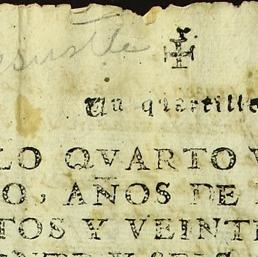 Un quartillo
LO QVARTO V
O, AÑOS DE
TOS Y VEINTE